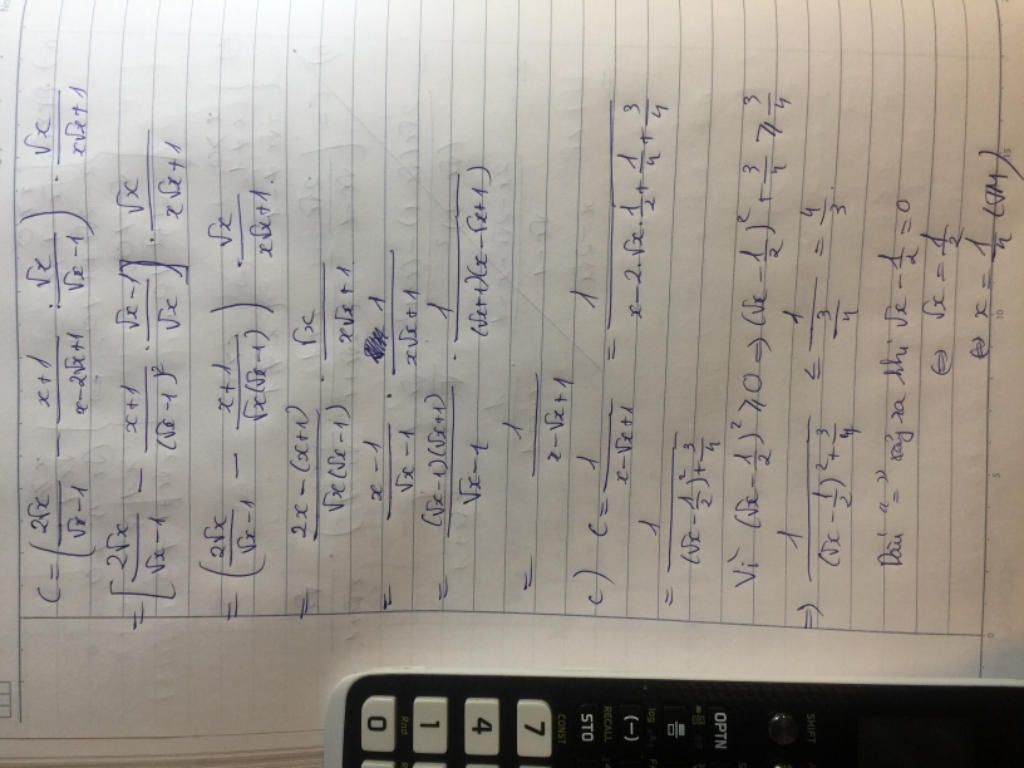 C = (2√x/(√x-1) - (x+1)/(x-2√x+1) : √x/(√x-1)) . √x/(x√x+1)
= [2√x/(√x-1) - (x+1)/(√x-1)² . (√x-1)/√x] . √x/(x√x+1)
= (2√x/(√x-1) - (x+1)/(√x(√x-1))) . √x/(x√x+1)
= (2x-(x+1))/(√x(√x-1)) . √x/(x√x+1)
= (x-1)/(√x-1) . 1/(x√x+1)
= (√x-1)(√x+1)/(√x-1) . 1/((√x+1)(x-√x+1))
= 1/(x-√x+1)
c) C = 1/(x-√x+1) = 1/(x-2.√x.1/2+1/4+3/4)
= 1/((√x-1/2)²+3/4)
Vì (√x-1/2)² ≥ 0 => (√x-1/2)²+3/4 ≥ 3/4
=> 1/((√x-1/2)²+3/4) ≤ 1/(3/4) = 4/3
Dấu "=" xảy ra khi √x-1/2=0
⇔ √x = 1/2
⇔ x = 1/4 (t/m)
0
5
10
15
SHIFT
OPTN
(-)
RECALL
STO
CONST
7
4
1
Rnd
0